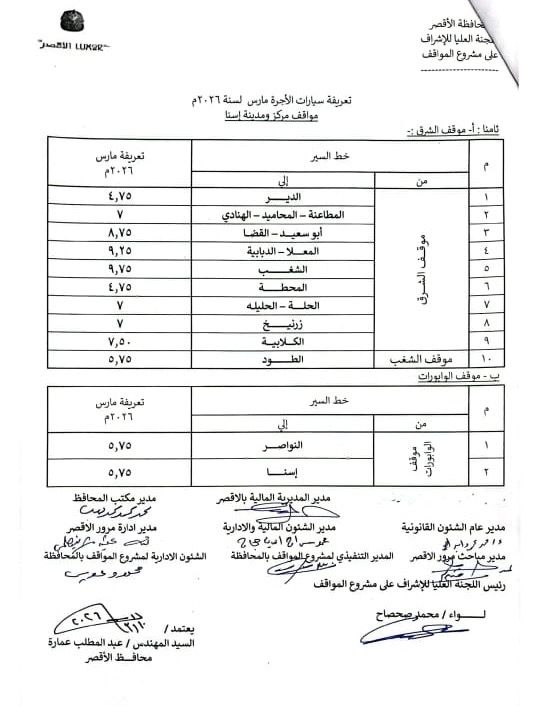 محافظة الأقصر
اللجنة العليا للإشراف
على مشروع المواقف
LUXOR الأقصر
تعريفة سيارات الأجرة مارس لسنة ٢٠٢٦م
مواقف مركز ومدينة إسنا
ثامنا : أ- موقف الشرق :-
م خط السير تعريفة مارس ٢٠٢٦م
من إلي
موقف الشرق
١ الديـر ٤,٧٥
٢ المطاعنة – المحاميد – الهنادي ٧
٣ أبو سعيد – القضا ٨,٧٥
٤ المعلا – الدبابية ٩,٢٥
٥ الشغب ٩,٧٥
٦ المحطة ٤,٧٥
٧ الحلة – الحليله ٧
٨ زرنيخ ٧
٩ الكلابية ٧,٥٠
١٠ موقف الشغب الطود ٥,٧٥
ب - موقف الوابورات
م خط السير تعريفة مارس ٢٠٢٦م
من إلي
موقف الوابورات
١ النواصر ٥,٧٥
٢ إسنا ٥,٧٥
مدير المديرية المالية بالاقصر مدير مكتب المحافظ
مدير عام الشئون القانونية مدير الشئون المالية والادارية مدير ادارة مرور الأقصر
مدير مباحث مرور الاقصر المدير التنفيذي لمشروع المواقف بالمحافظة الشئون الادارية لمشروع المواقف بالمحافظة
رئيس اللجنة العليا للإشراف على مشروع المواقف
لـــواء / محمد صحصاح
يعتمد / ٢٠٢٦
السيد المهندس / عبد المطلب عمارة
محافظ الأقصر